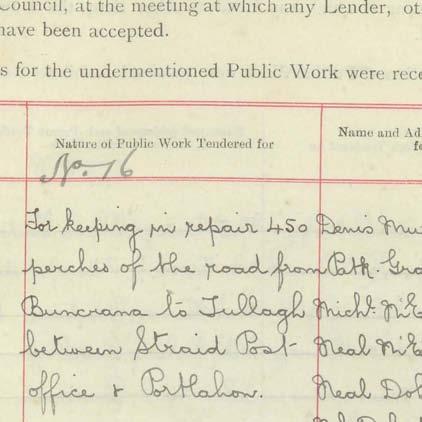 Council, at the meeting at which any Lender, ot
have been accepted.
s for the undermentioned Public Work were rece
Nature of Public Work Tendered for
Name and Ad
fo
No. 16
For keeping in repair 450
perches of the road from
Buncrana to Tullagh
between Straid Post-
office & Portlahon.
Denis Mu
Patk. Gra
Michl. McE
Neal McE
Neal Dol